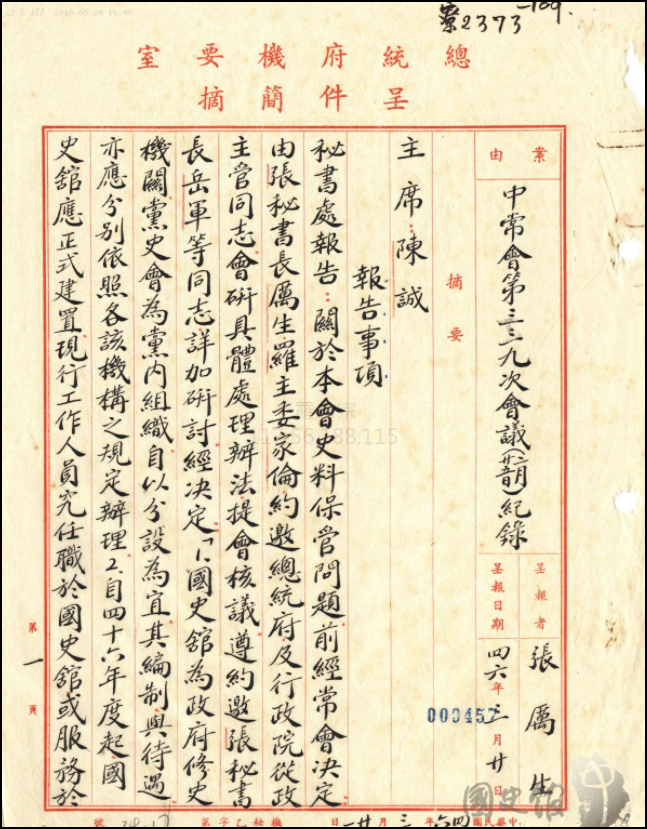 2373 -109.
總統府機要室
呈件簡摘
案由
中常會第三三九次會議紀錄
呈報者
張厲生
呈報日期
四六年三月廿日
000457
摘要
主席:陳誠
報告事項
秘書處報告:關於本會史料保管問題前經常會決定
由張秘書長厲生羅主委家倫約邀總統府及行政院從政
主管同志會研具體處理辦法提會核議遵約邀張秘書
長岳軍等同志詳加研討經決定「1.國史館為政府修史
機關黨史會為黨內組織自以分設為宜其編制與待遇
亦應分別依照各該機構之規定辦理2.自四十六年度起國
史館應正式建置現行工作人員究任職於國史館或服務於
第一頁
中華民國四六年三月廿一日
機秘乙字第 號
國史館